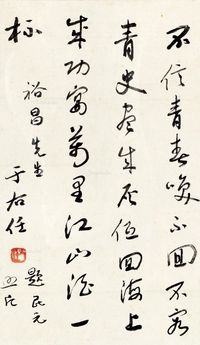 不信青春喚不回不容
青史盡成灰低回海上
成功宴萬里江山酒一
杯
裕昌先生
于右任
題民元
照片